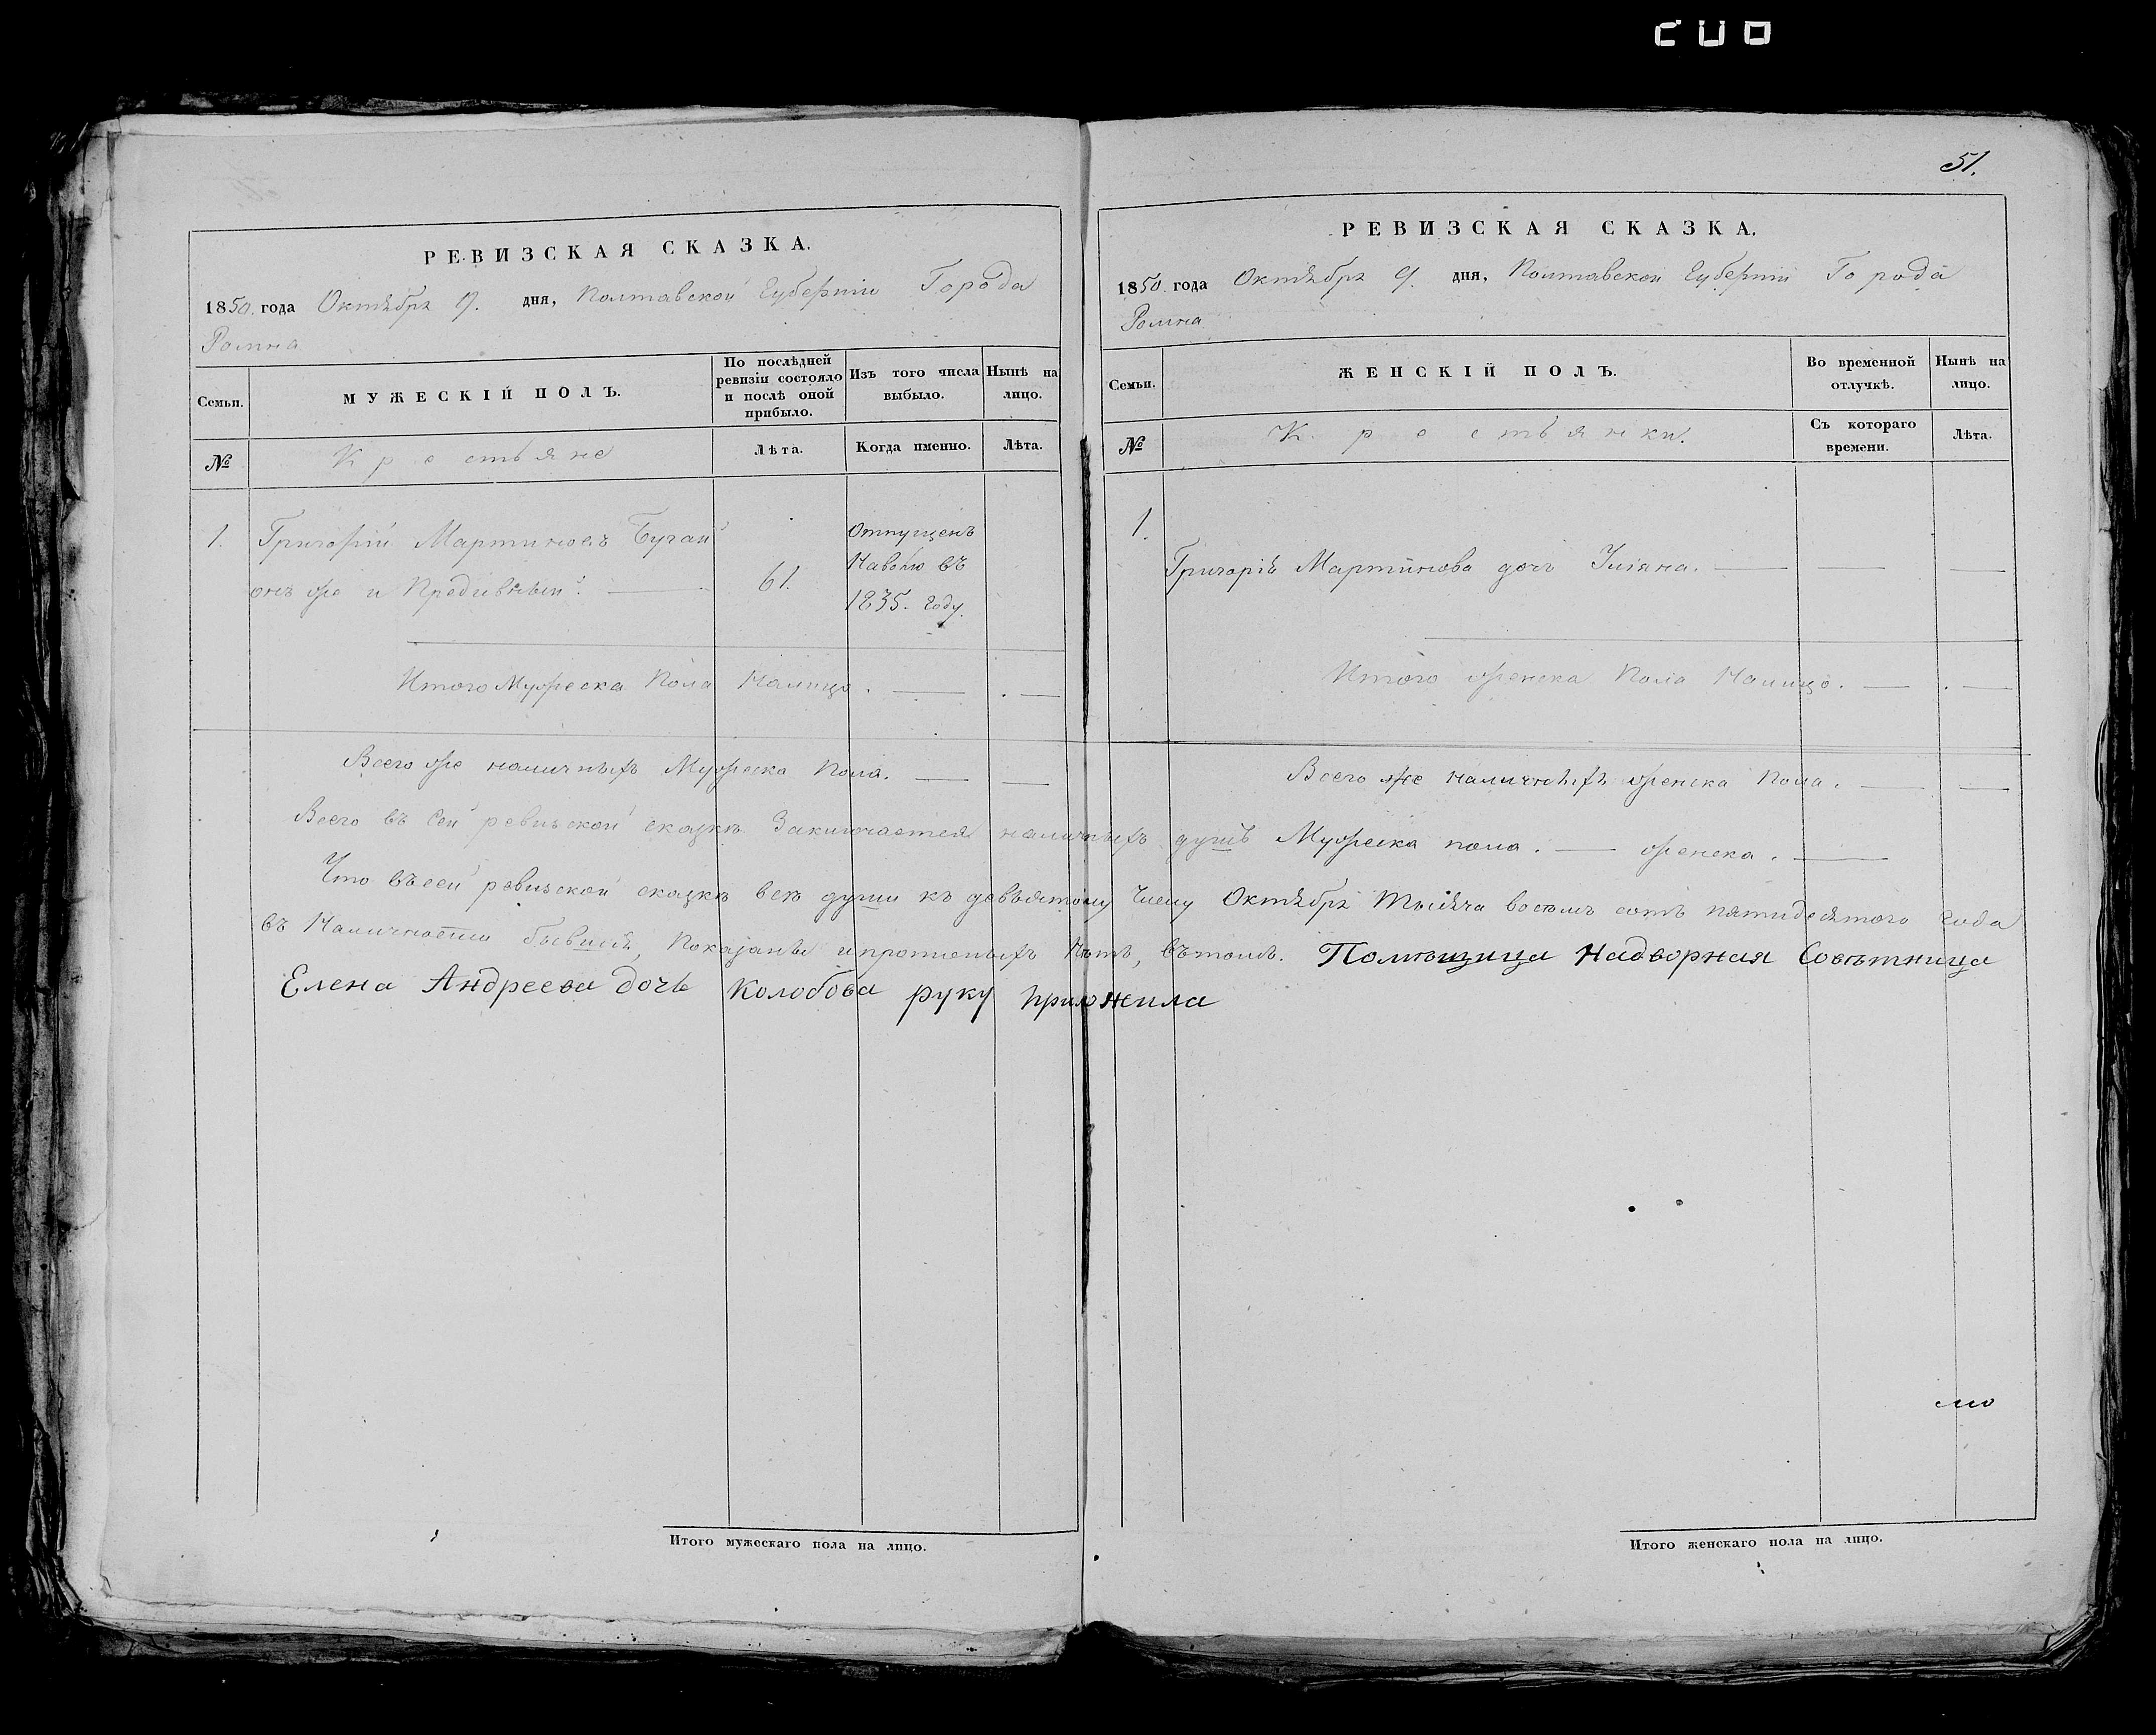 51.
РЕВИЗСКАЯ СКАЗКА.
1850. года Октября 9. дня, Полтавской Губерніи Города
Ромна
Семьи.
МУЖЕСКІЙ ПОЛЪ.
По послѣдней ревизіи состояло и послѣ оной прибыло.
Изъ того числа выбыло.
Нынѣ на лицо.
№
Крестьяне
Лѣта.
Когда именно.
Лѣта.
1. Григорій Мартиновъ Бугай
онъ же и
61.
Отпущенъ
Наволю въ
1835. году.
Итого Мужеска Пола Налицо.
Всего же наличныхъ Мужеска Пола.
РЕВИЗСКАЯ СКАЗКА.
1850. года Октября 9. дня, Полтавской Губерніи Города
Ромна
Семьи.
ЖЕНСКІЙ ПОЛЪ.
Во временной отлучкѣ.
Нынѣ на лицо.
№
Крестьянки.
Съ котораго времени.
Лѣта.
1.
Григорія Мартинова дочь Уліяна.
Итого женска Пола Налицо.
Всего же наличныхъ женска Пола.
Всего въ Сей ревизской сказкѣ Заключается наличныхъ душъ Мужеска пола. — женска. —
Что въсей ревизской сказкѣ всѣ души къ девьятому Числу Октября Тысяча восемь сотъ пятидесятого года
въ Наличности бывшія, Показаны ипрописныхъ Нѣтъ, вътомъ. Помѣщица Надворная Совѣтница
Елена Андреева дочь Колобова руку приложила
Итого мужескаго пола на лицо.
Итого женскаго пола на лицо.